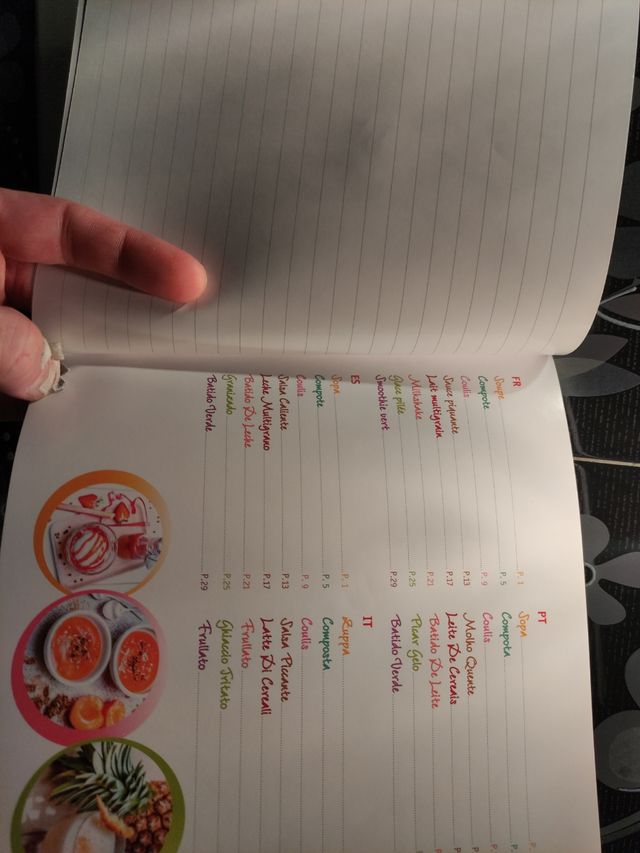 FR
Soupe P. 1
Compote P. 5
Coulis P. 9
Sauce piquante P.13
Lait multigrain P.17
Milkshake P.21
Glace pilée P.25
Smoothie vert P.29
ES
Sopa P. 1
Compote P. 5
Coulis P. 9
Salsa Caliente P.13
Leche Multigrano P.17
Batido De Leche P.21
Granizado P.25
Batido Verde P.29
PT
Sopa P.
Compota P.
Coulis P.
Molho Quente P.
Leite De Cereais P
Batido De Leite P
Picar Gelo
Batido Verde
IT
Zuppa
Composta
Coulis
Salsa Piccante
Latte Di Cereali
Frullato
Ghiaccio Tritato
Frullato